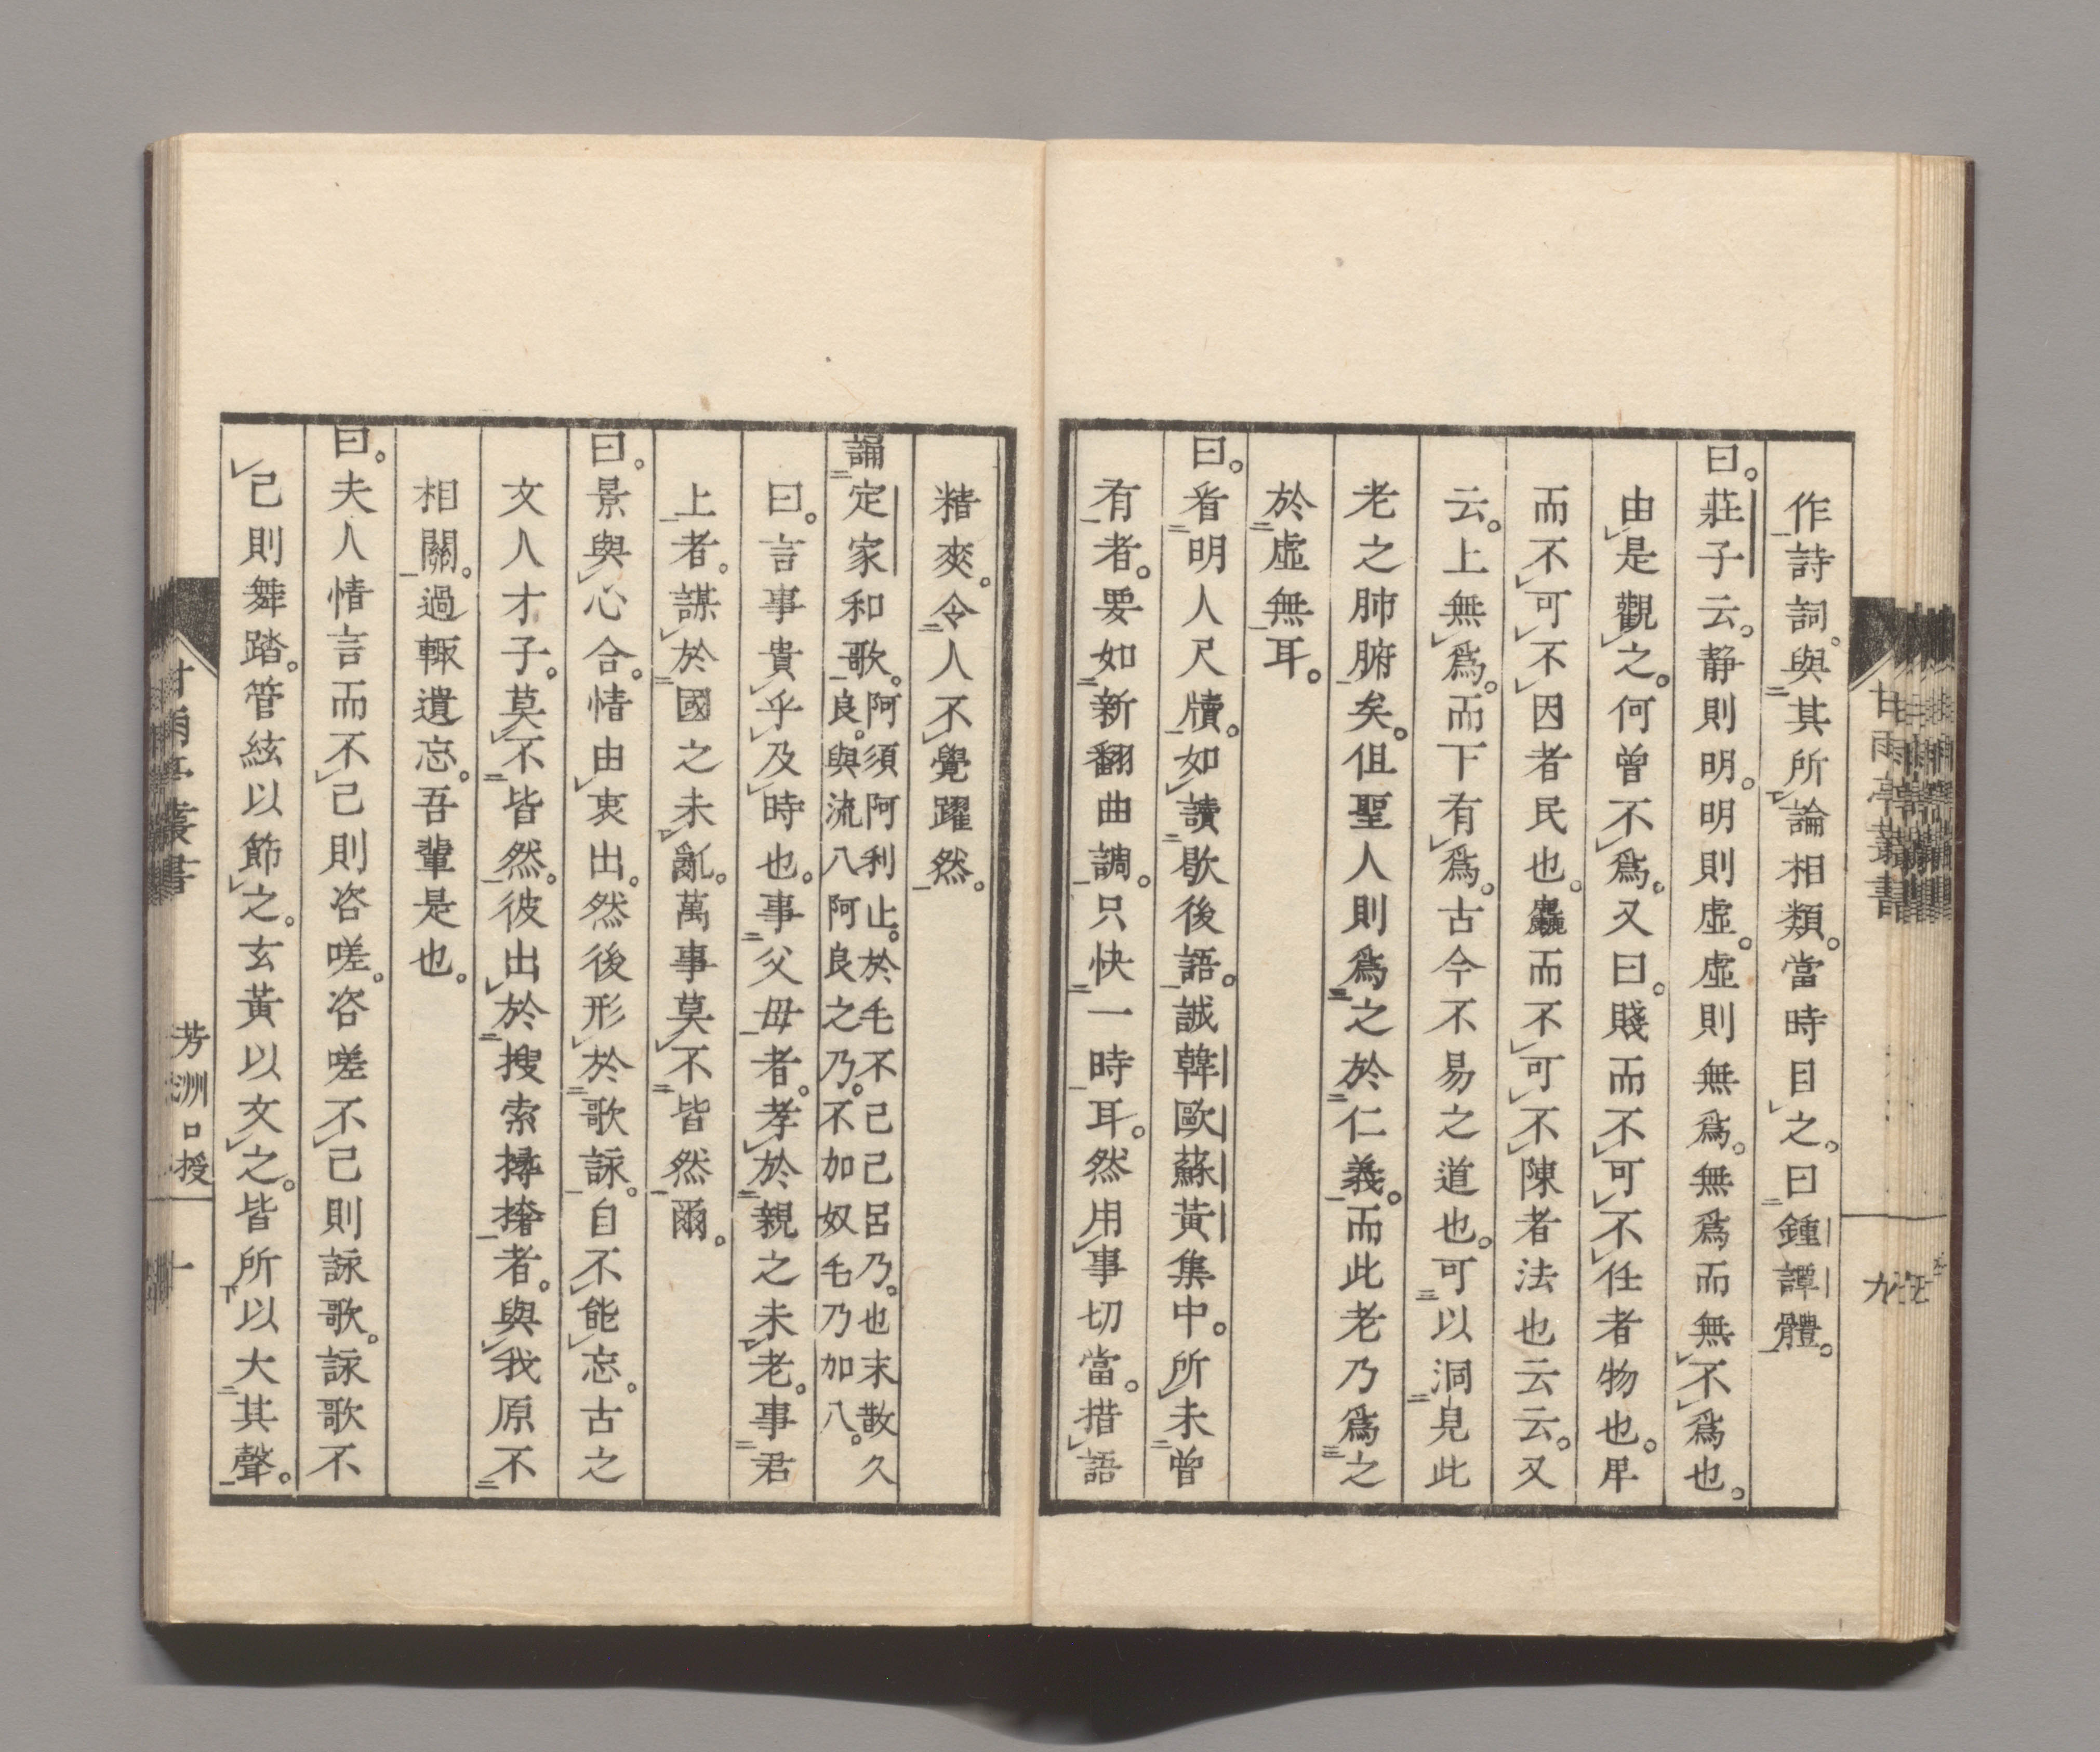 作詩詞。與其所論相類。當時目之。曰鍾譚體。
曰。莊子云。静則明。明則虛。虛則無爲。無爲而無不爲也。
由是觀之。何曾不爲。又曰。賤而不可不任者物也。卑
而不可不因者民也。麤而不可不陳者法也云云。又
云。上無爲。而下有爲。古今不易之道也。可以洞見此
老之肺腑矣。但聖人則爲之於仁義。而此老乃爲之
於虛無耳。
曰。看明人尺牘。如讀歇後語。誠韓歐蘇黃集中。所未曾
有者。要如新翻曲調。只快一時耳。然用事切當。措語
甘雨亭叢書
九
精爽。令人不覺躍然。
誦定家和歌。阿須阿利止。於毛不己己呂乃。也末散久
良。與流八阿良之乃。不加奴毛乃加八。
曰。言事貴乎及時也。事父母者。孝於親之未老。事君
上者。謀於國之未亂。萬事莫不皆然爾。
曰。景與心合。情由衷出。然後形於歌詠。自不能忘。古之
文人才子。莫不皆然。彼出於搜索撏撦者。與我原不
相關。過輒遺忘。吾輩是也。
曰。夫人情言而不已則咨嗟。咨嗟不已則詠歌。詠歌不
已則舞踏。管絃以節之。玄黃以文之。皆所以大其聲。
甘雨亭叢書
芳洲口授